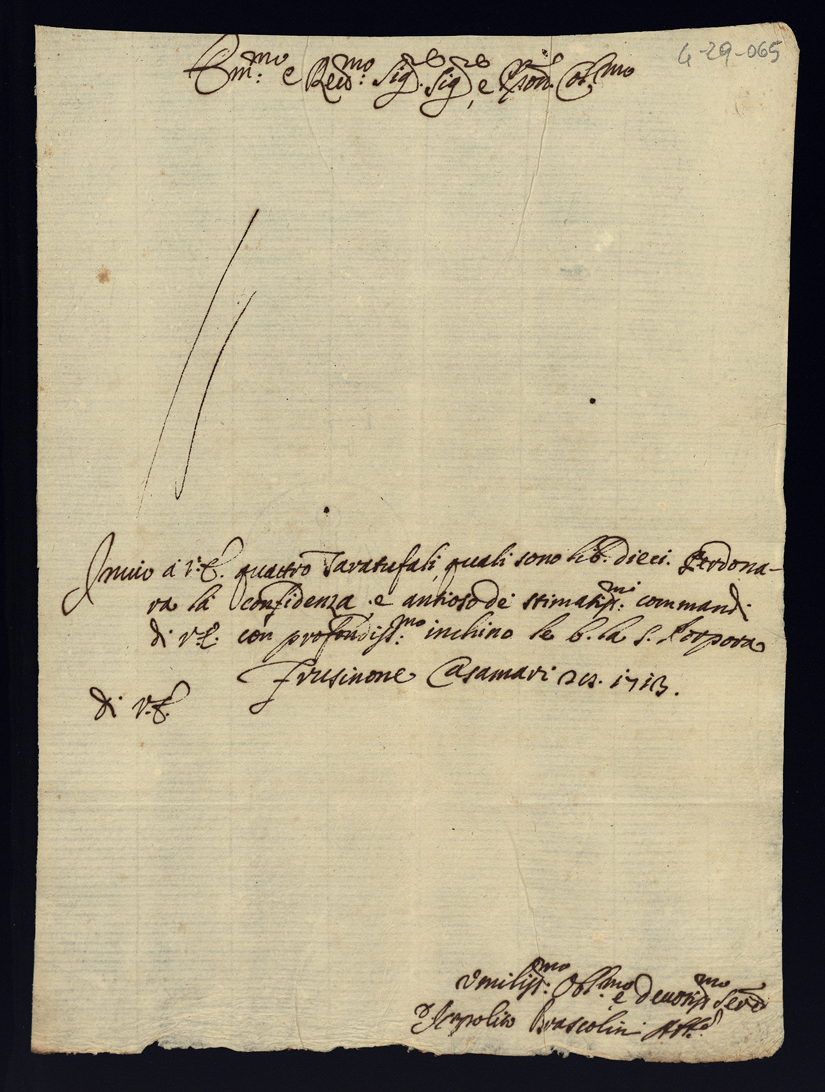 4-29-065
Em:mo e Reu:mo Sig.re Sig.re e Pron. Col.mo
Inuio à V.E. quattro Taratufali, quali sono lib. dieci. Perdona-
rà la confidenza e antioso de stimatiss:mi commandi
di V.E. con profondiss:mo inchino le b. la S. Porpora
Frusinone Casamari 1713.
di V.E.
Vmiliss:mo Obl:mo e Deuotiss:mo Serv.
D. Ippolito